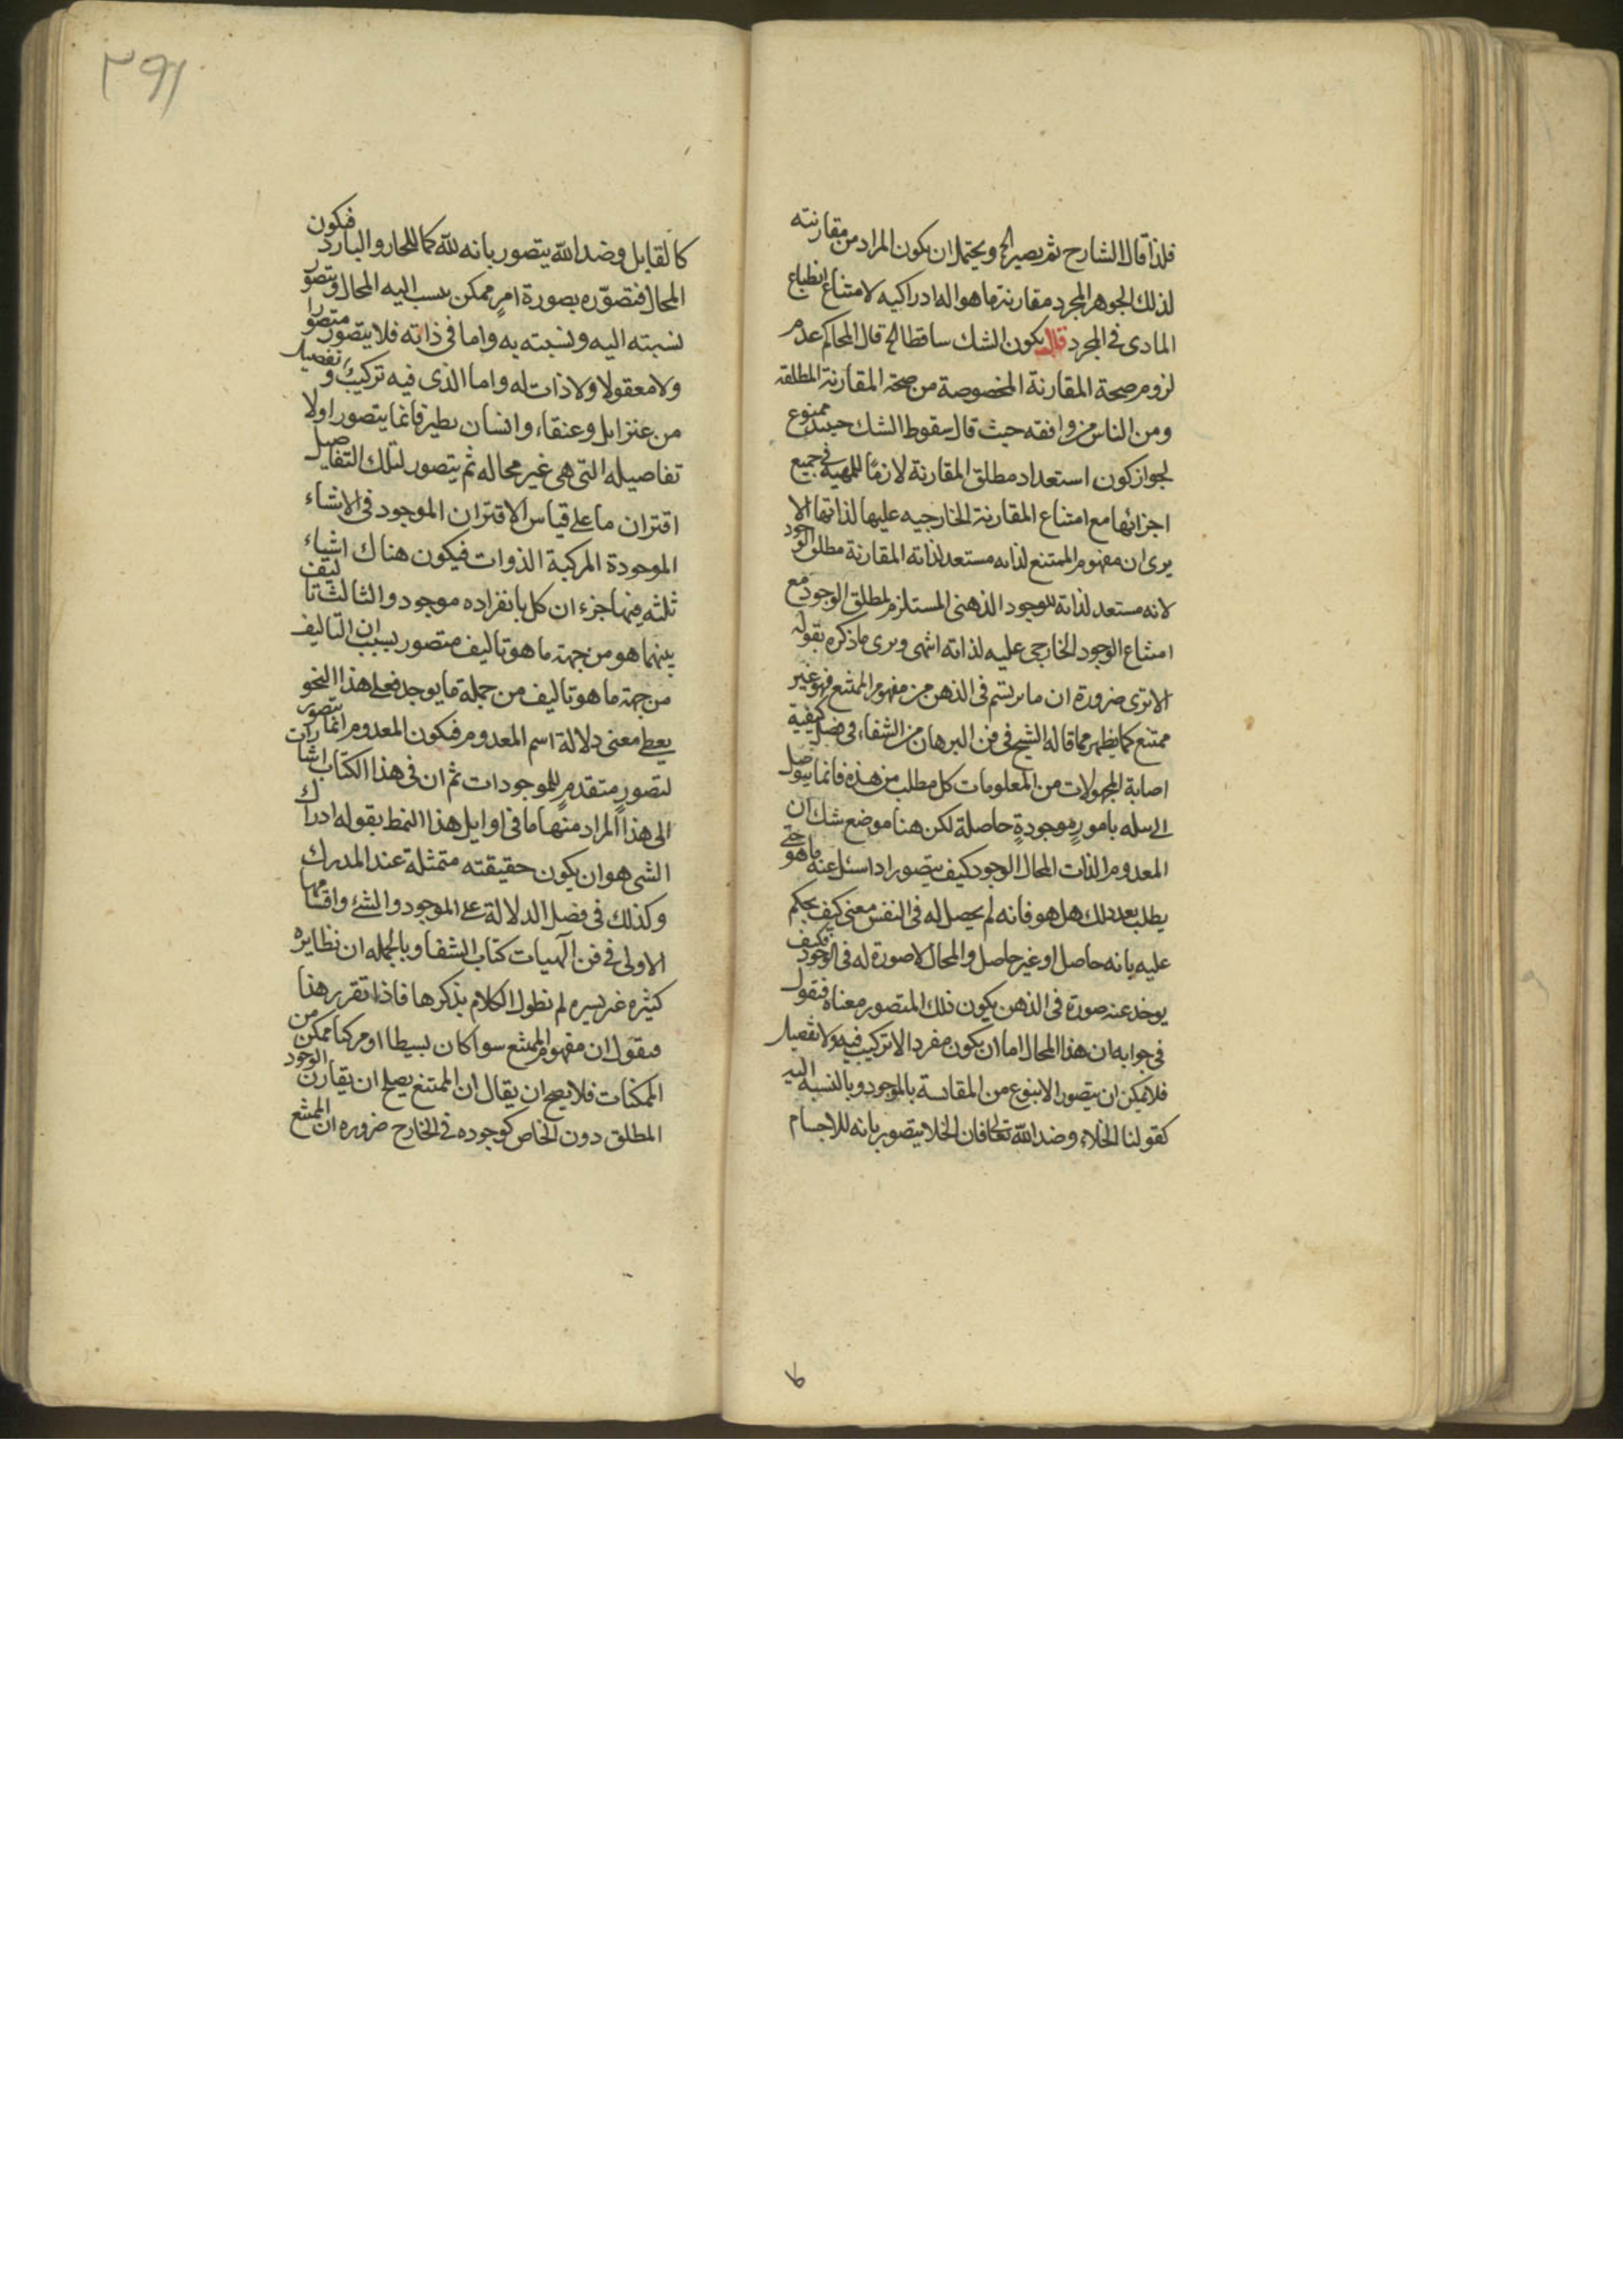 فلذا قال الشارح ثم يصير الخ ويحتمل ان يكون المراد من مقارنته
لذلك الجوهر المجرد مقارنة ما هو اله ادراكيه لامتناع انطباع
المادى فى المجرد قال يكون الشك ساقطا الخ قال المحاكم عدم
لزوم صحة المقارنة المخصوصة من صحة المقارنة المطلقه
ومن الناس من وافقه حيث قال سقوط الشك حينئذ ممنوع
لجواز كون استعداد مطلق المقارنة لازما للمهية فى جميع
اجزائها مع امتناع المقارنة الخارجيه عليها لذاتها الا
يرى ان مفهوم الممتنع لذاته مستعد لذاته المقارنة مطلق الوجود
لانه مستعد لذاته للوجود الذهنى المستلزم لمطلق الوجود مع
امتناع الوجود الخارجى عليه لذاته انتهى ويرى ما ذكره بقوله
الا ترى ضرورة ان ما يرتسم فى الذهن من مفهوم الممتنع فهو غير
ممتنع كما يظهر مما قاله الشيخ فى فن البرهان من الشفاء فى فصل كيفية
اصابة المجهولات من المعلومات كل مطلب من هذه فانما يتوصل
الى سله بامور موجودة حاصلة لكن هنا موضع شك ان
المعدوم الذات المحال الوجود كيف يتصور اذا سئل عنه ما هو حتى
يطلب بعد ذلك هل هو فانه لم يحصل له فى النفس معنى كيف يحكم
عليه بانه حاصل او غير حاصل والمحال لا صورة له فى الوجود فكيف
يوخذ عنه صورة فى الذهن يكون ذلك المتصور معناه فنقول
فى جوابه ان هذا المحال اما ان يكون مفردا لا تركيب فيه ولا تفصيل
فلا يمكن ان يتصور الا بنوع من المقايسة بالموجود وبالنسبه اليه
كقولنا الخلاء وضد الله تعالى فان الخلا يتصور بانه للاجسام
ط
٣٩١
كالقابل وضد الله يتصور بانه لله كما للحار والبارد فيكون
المحال فتصوره بصورة امر ممكن ينسب اليه المحال ويتصور
نسبته اليه ونسبته به واما فى ذاته فلا يتصور متصورا
ولا معقولا ولا ذات له واما الذى فيه تركيب و تفصيل
من عنز ايل وعنقاء وانسان يطير فانما يتصور اولا
تفاصيله التى هى غير محاله ثم يتصور لتلك التفاصيل
اقتران ما على قياس الاقتران الموجود فى الاشياء
الموجودة المركبة الذوات فيكون هناك اشياء
ثلثه منها جزءان كل بانفراده موجود والثالث تاليف
بينهما هو من جهة ما هو تاليف متصور بسبب ان التاليف
من جهة ما هو تاليف من جملة ما يوجد فعلى هذا النحو
يعطى معنى دلالة اسم المعدوم فيكون المعدوم انما يتصور
لتصور متقدم للموجودات ثم ان فى هذا الكتاب اشارات
الى هذا المراد منها ما فى اوايل هذا النمط بقوله ادراك
الشى هو ان يكون حقيقته متمثلة عند المدرك
وكذلك فى فصل الدلالة على الموجود والشئ واقسامها
الاولى فى فن الهيات كتاب الشفا وبالجمله ان نظايره
كثيره غير يسيره لم نطول الكلام بذكرها فاذا تقرر هذا
فنقول ان مفهوم الممتنع سوا كان بسيطا او مركبا ممكن من
الممكنات فلا يصح ان يقال ان الممتنع يصلح ان يقارن الوجود
المطلق دون الخاص كوجوده فى الخارج ضروره ان الممتنع